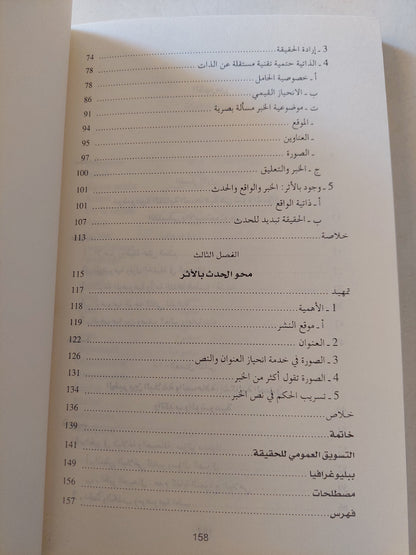 3 ـ إرادة الحقيقة ........ 74
4 ـ الذاتية حتمية تقنية مستقلة عن الذات ........ 78
أ ـ خصوصية الحامل ........ 78
ب ـ الانحياز القيمي ........ 86
ت ـ موضوعية الخبر مسألة بصرية ........ 91
ـ الموقع ........ 94
ـ العناوين ........ 95
ـ الصورة ........ 97
ج ـ الخبر والتعليق ........ 100
5 ـ وجود بالأثر: الخبر والواقع والحدث ........ 101
أ ـ ذاتية الواقع ........ 101
ب ـ الحقيقة تبديد للحدث ........ 107
خلاصة ........ 113
الفصل الثالث
محو الحدث بالأثر ........ 115
تمهيد ........ 117
1 ـ الأهمية ........ 118
أ ـ موقع النشر ........ 119
2 ـ العنوان ........ 122
3 ـ الصورة في خدمة انحياز العنوان والنص ........ 126
4 ـ الصورة تقول أكثر من الخبر ........ 131
5 ـ تسريب الحكم في نص الخبر ........ 134
خلاص ........ 136
خاتمة ........ 139
التسويق العمومي للحقيقة ........ 141
ببليوغرافيا ........ 149
مصطلحات ........ 156
فهرس ........ 157
158